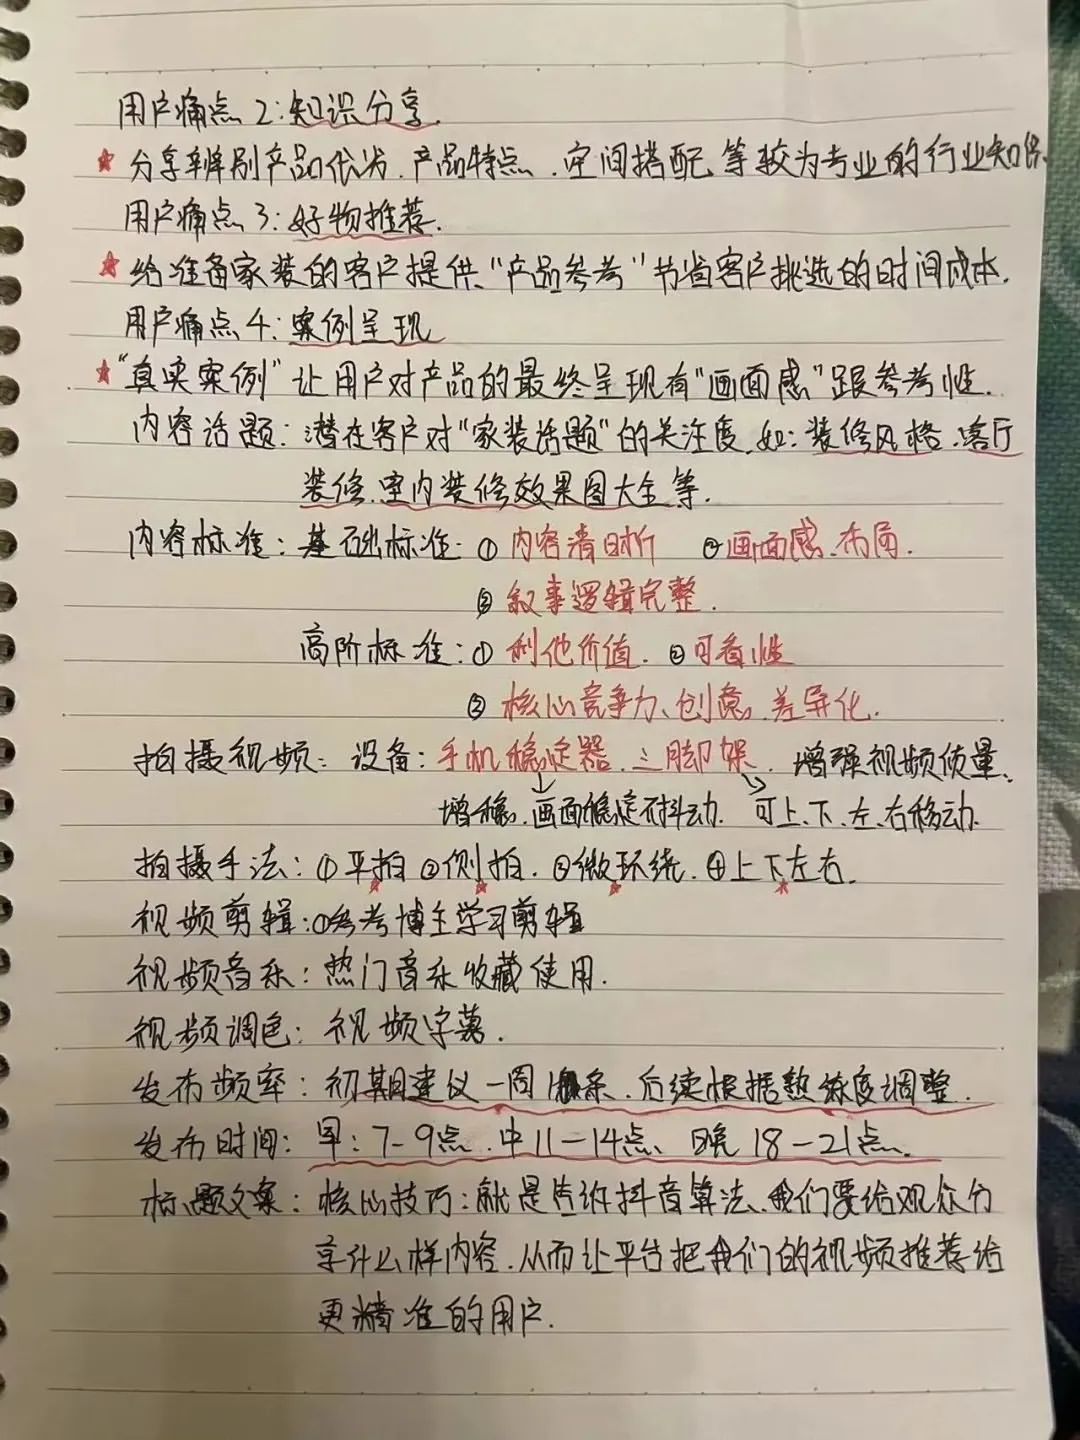 用户痛点2:知识分享.
★分享辨别产品优劣.产品特点.空间搭配等较为专业的行业知识.
用户痛点3:好物推荐.
★给准备家装的客户提供"产品参考"节省客户挑选的时间成本.
用户痛点4:案例呈现
★"真实案例"让用户对产品的最终呈现有"画面感"跟参考性.
内容话题:潜在客户对"家装话题"的关注度.如:装修风格.客厅
装修.室内装修效果图大全等.
内容标准:基础标准:①内容清晰 ②画面感.布局.
③叙事逻辑完整.
高阶标准:①利他价值. ②可看性
③核心竞争力、创意.差异化.
拍摄视频:设备:手机稳定器.三脚架. 增强视频质量.
增稳.画面稳定不抖动. 可上.下.左.右移动.
拍摄手法:①平拍②侧拍.③微环绕.④上下左右.
视频剪辑:①参考博主学习剪辑
视频音乐:热门音乐收藏使用.
视频调色:视频字幕.
发布频率:初期建议一周条.后续根据熟练度调整.
发布时间:早:7-9点.中11-14点、晚18-21点.
标题文案:核心技巧:就是告诉抖音算法、我们要给观众分
享什么样内容.从而让平台把我们的视频推荐给
更精准的用户.